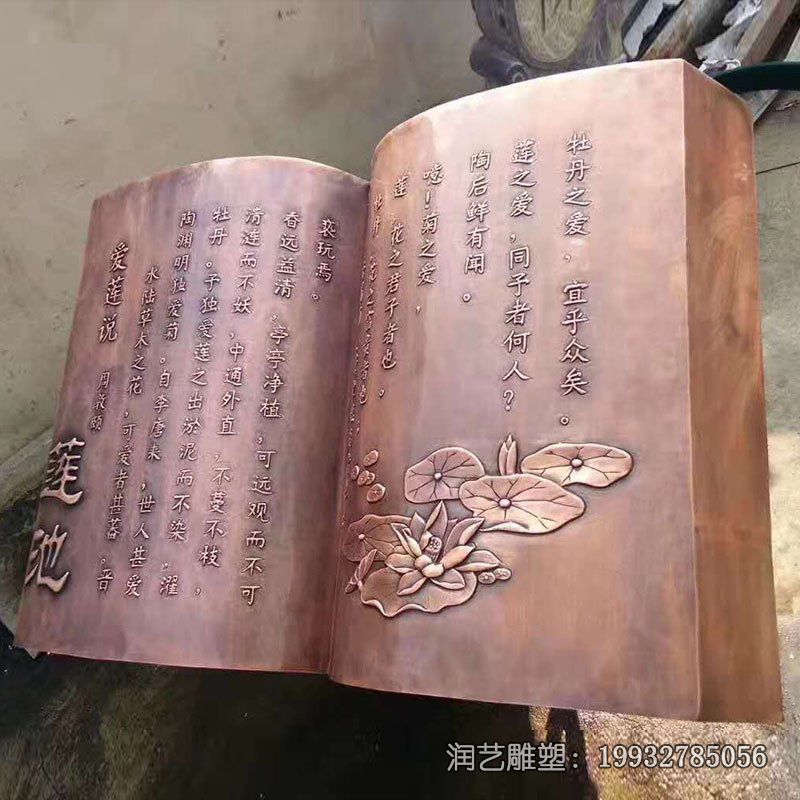 莲池
爱莲说 周敦颐
水陆草木之花，可爱者甚蕃。晋
陶渊明独爱菊。自李唐来，世人甚爱
牡丹。予独爱莲之出淤泥而不染，濯
清涟而不妖，中通外直，不蔓不枝，
香远益清，亭亭净植，可远观而不可
亵玩焉。
牡丹，花之富贵者也。
莲，花之君子者也。
噫！菊之爱，
陶后鲜有闻。
莲之爱，同予者何人？
牡丹之爱，宜乎众矣。
润艺雕塑：19932785056